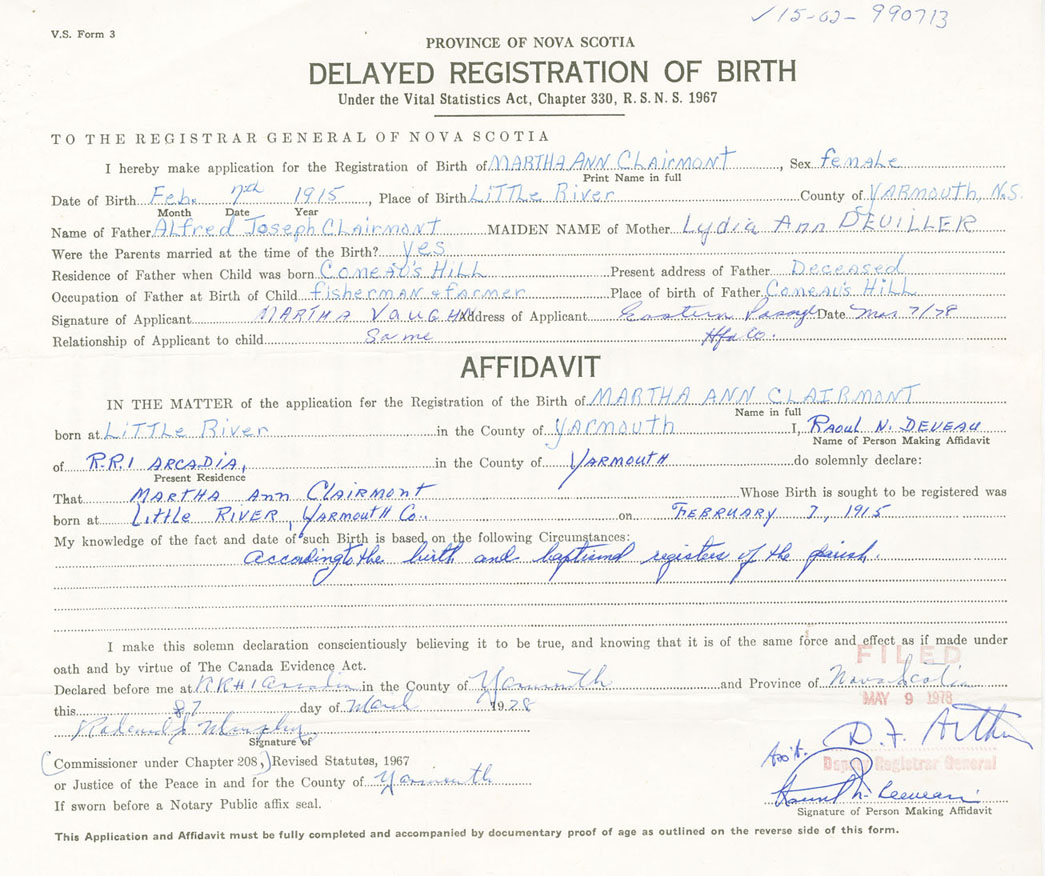 ✓15-02-990713
V.S. Form 3
PROVINCE OF NOVA SCOTIA
DELAYED REGISTRATION OF BIRTH
Under the Vital Statistics Act, Chapter 330, R.S.N.S. 1967
TO THE REGISTRAR GENERAL OF NOVA SCOTIA
I hereby make application for the Registration of Birth of MARTHA ANN CLAIRMONT, Sex female
Print Name in full
Date of Birth Feb. 7th 1915, Place of Birth LITTLE RIVER County of YARMOUTH, N.S.
Month Date Year
Name of Father ALFRED JOSEPH CLAIRMONT MAIDEN NAME of Mother Lydia Ann DEVILLER
Were the Parents married at the time of the Birth? yes
Residence of Father when Child was born COMEAU'S HILL Present address of Father Deceased
Occupation of Father at Birth of Child fisherman & farmer Place of birth of Father COMEAU'S HILL
Signature of Applicant MARTHA VAUGHN Address of Applicant Eastern Passage Date Mar 7/78
Relationship of Applicant to child Same Hfx Co.
AFFIDAVIT
IN THE MATTER of the application for the Registration of the Birth of MARTHA ANN CLAIRMONT
Name in full
born at LITTLE RIVER in the County of YARMOUTH I, RAOUL N. DEVEAU
Name of Person Making Affidavit
of R.R.1 ARCADIA, in the County of YARMOUTH do solemnly declare:
Present Residence
That MARTHA Ann CLAIRMONT Whose Birth is sought to be registered was
born at Little RIVER, YARMOUTH Co. on FEBRUARY 7, 1915
My knowledge of the fact and date of such Birth is based on the following Circumstances:
According to the birth and baptismal registers of the parish.
I make this solemn declaration conscientiously believing it to be true, and knowing that it is of the same force and effect as if made under
oath and by virtue of The Canada Evidence Act.
FILED
Declared before me at RR#1 Arcadia in the County of Yarmouth and Province of Nova Scotia
MAY 9 1978
this day of March 1978
Murphy
Signature of
D. F. Arthur
Ass't. Deputy Registrar General
(Commissioner under Chapter 208,) Revised Statutes, 1967
or Justice of the Peace in and for the County of Yarmouth
If sworn before a Notary Public affix seal.
Signature of Person Making Affidavit
This Application and Affidavit must be fully completed and accompanied by documentary proof of age as outlined on the reverse side of this form.